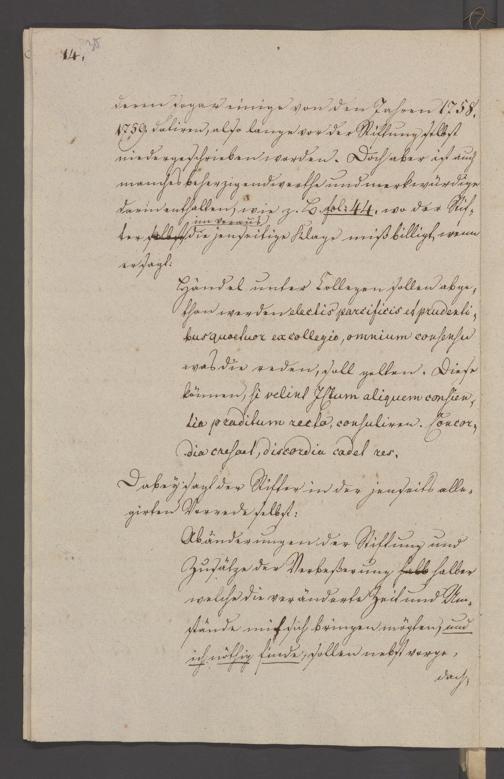 14.
deren sogar einige von den Jahren 1758.
1759. datiren, also lange vor der Stiftung selbst
niedergeschrieben worden. Doch aber ist auch
manches beherzigenswerthe und merkwürdige
darin enthalten, wie z. B. fol: 44. wo der Stif-
im voraus
ter selbst die jenseitige Klage mißbilligt, wenn
er sagt:
Händel unter Collegen sollen abge-
than werden electis pacificis et prudenti-
bus quatuor ex collegio, omnium consensu
was die reden, soll gelten. Diese
können, si velint JCtum aliquem conscien-
tia praditum recta, consuliren. Concor-
dia crescet, discordia cadet res.
Dabey sagt der Stifter in der jenseits alle-
girten Vorrede selbst:
Abänderungen der Stiftung und
Zusätze der Verbeßerung halb halber
welche die veränderte Zeit und Um-
stände mit sich bringen mögten, und
ich nöthig finde, sollen nebst vorge-
dach-